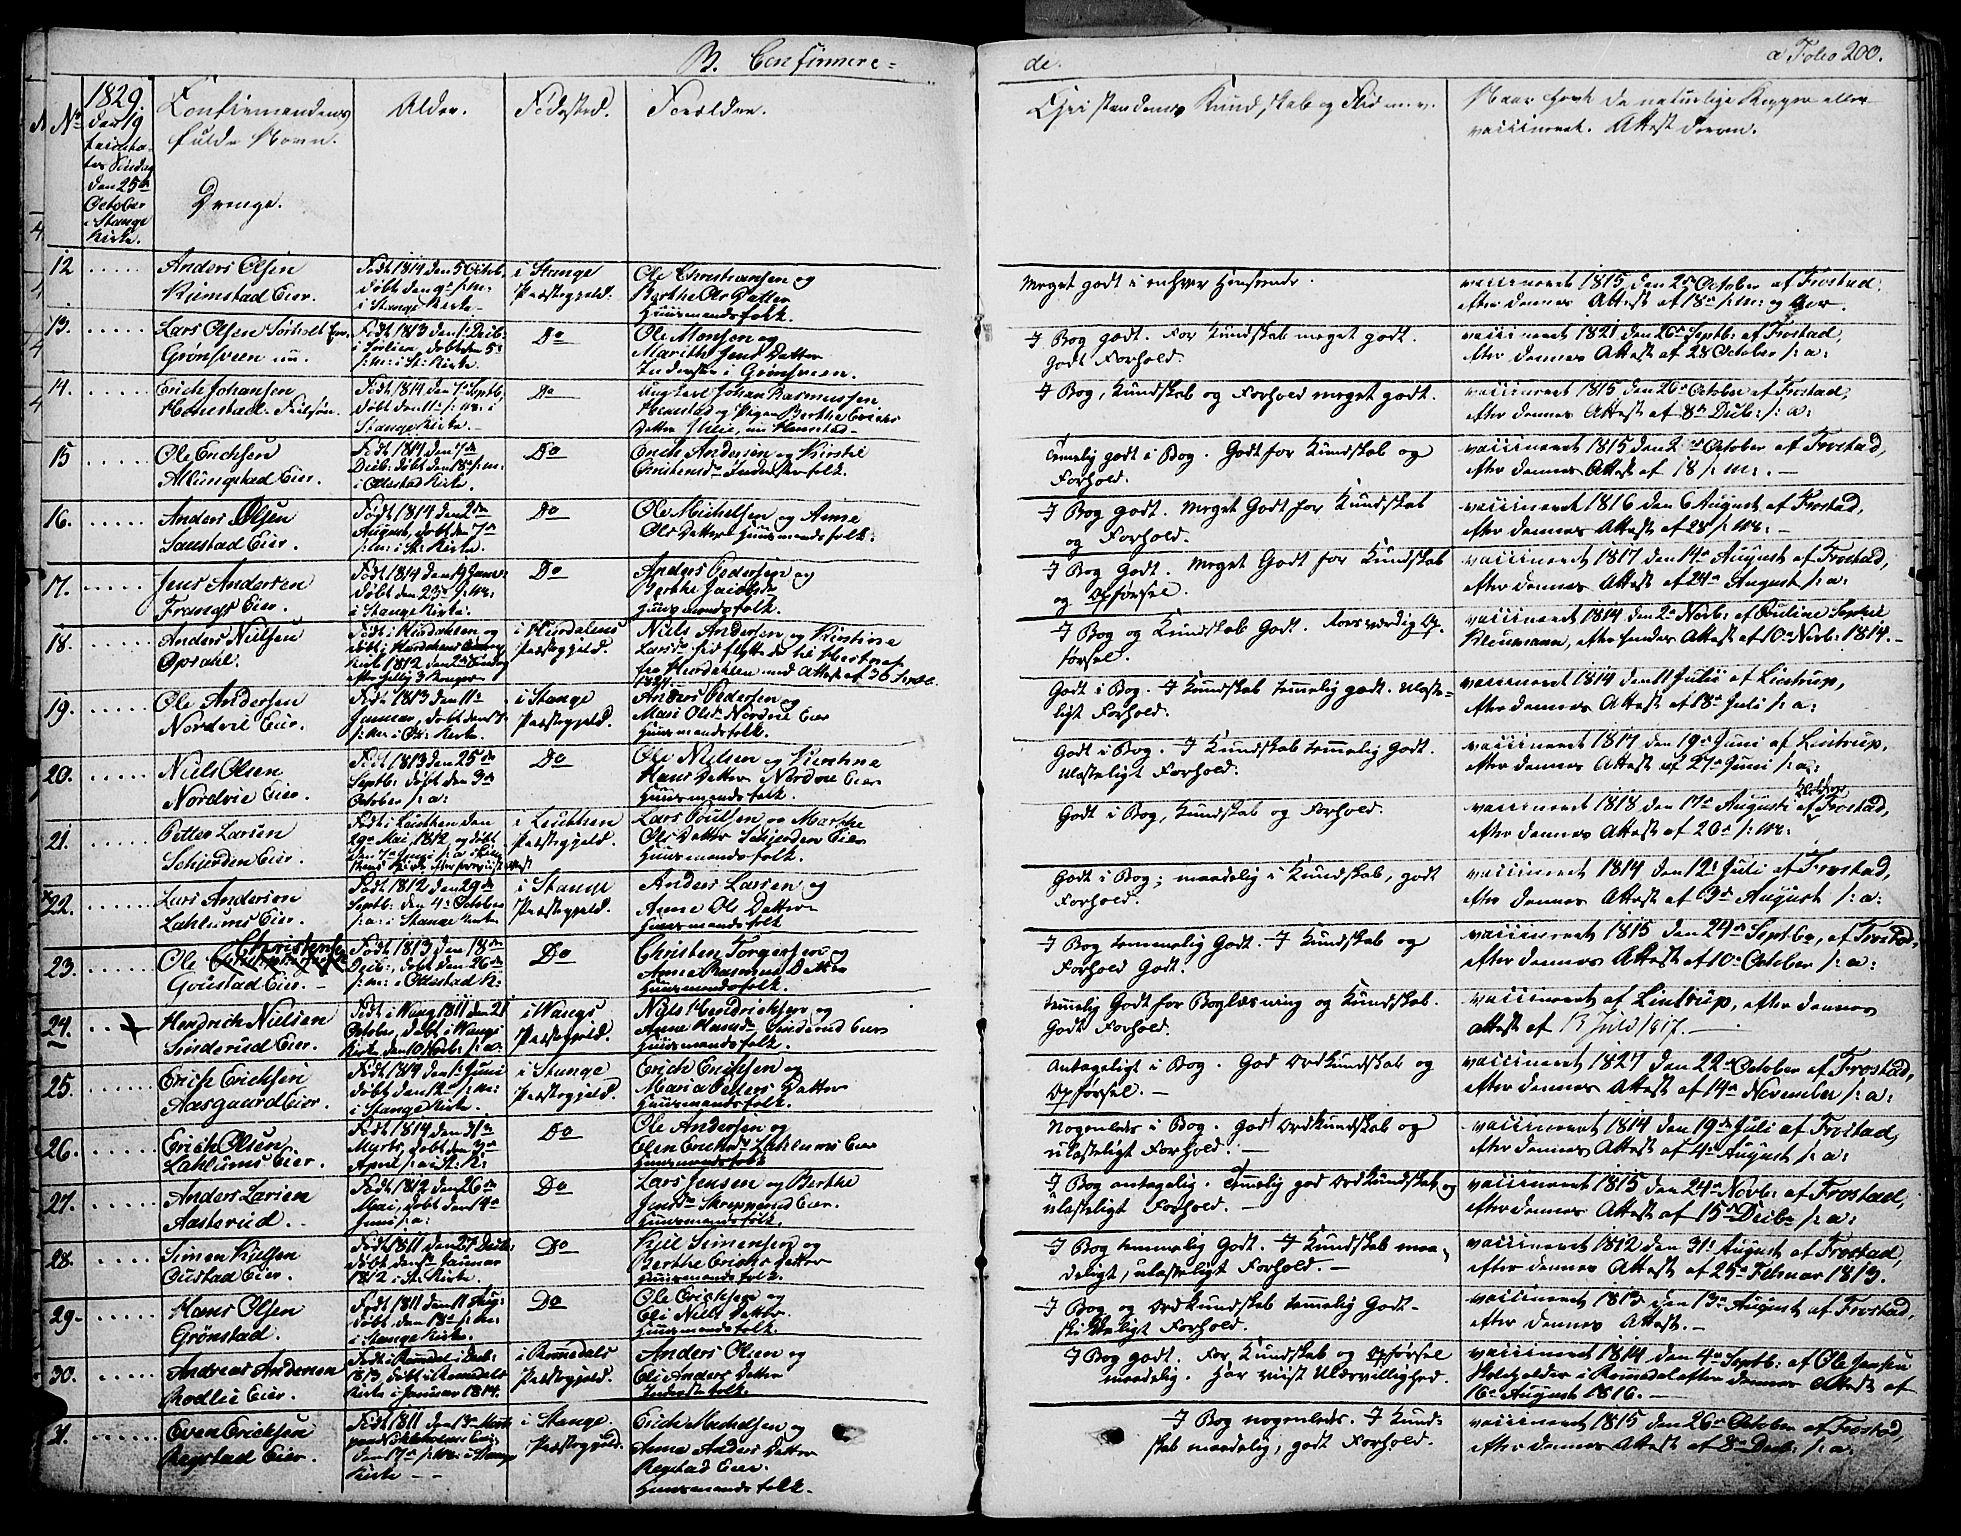 B. Confirmere=
de.
a Folio 200.
No
1829.
den 19
trinita-
tis Søndag
den 25de
October
i Stange
Kirke.
Confirmandens
fulde Navn.
Drenge.
Alder.
Fødested.
Forældre.
Christendoms Kundskab og Flid m. v.
Naar havt de naturlige Kopper eller
vaccineret. Attest derom.
12
Anders Olsen
Eier.
Født 1814 den 5 Octob.
døbt den 9de s: m:
i Stange Kirke.
i Stange
Præstegjeld.
Ole Christiansen og
Berthe Ols Datter
Huusmandsfolk.
Meget godt i enhver Henseende.
vaccineret 1815 den 2de October af Frostad,
efter dennes Attest af 18de s: m: og Aar.
13.
Lars Olsen
Grønsveen
Født 1813 den
døbt den 5te
i St: Kirke.
Do
Ole Monsen og
Marithe Jens Datter
Inderster i Grønsveen.
I Bog godt. For Kundskab meget godt.
Godt Forhold.
vaccineret 1821 den 26de Septb: af Frostad,
efter dennes Attest af 28 October s: a:
14.
Erich Johansen
Født 1814 den 7de Septb.
døbt den 11te s: m: i
Stange Kirke.
Do
Ungkarl Johan Rasmussen
og Pigen Berthe Erichs
Datter
I Bog, Kundskab og Forhold meget godt.
vaccineret 1815 den 26de October af Frostad,
efter dennes Attest af 8de Decb: s: a:
15
Ole Erichsen
Eier.
Født 1814 den 7de
Decb: døbt den 18de s: m:
i Ottestad Kirke.
Do
Erich Andersen og Kirstie
Inderstefolk.
Temelig godt i Bog. Godt for Kundskab og
Forhold.
vaccineret 1815 den 2den October af Frostad,
efter dennes Attest af 18 s: m:. —
16.
Anders Olsen
Saustad Eier.
Født 1814 den 2den
August, døbt den 7de
s: m: i St: Kirke.
Do
Ole Michelsen og Anne
Ols Datter Huusmandsfolk.
I Bog godt. Meget Godt for Kundskab
og Forhold.
vaccineret 1816 den 6 August af Frostad,
efter dennes Attest af 28 s: m: —
17.
Jens Andersen
Frangs Eier.
Født 1814 den 19 Janr:
døbt den 23de s: m:
i Stange Kirke.
Do
Anders Pedersen og
Berthe Jacobsd.
Huusmandsfolk.
I Bog Godt. Meget Godt for Kundskab
og Opførsel.
vaccineret 1817 den 14de August af Frostad,
efter dennes Attest af 24de August s: a:
18.
Anders Nielsen
Opsahl.
Født i Hurdahlen og
døbt i Hurdahlens
Kirke 1812 den 2den Søndag
efter hellig 3 Konger
i Hurdalens
Præstegjeld.
Niels Andersen og Kirstine
Larsd. hid flyttede til
fra Hurdahlen med Attest af
1824.
I Bog og Kundskab Godt. Roesværdig Op-
førsel.
vaccineret 1814 den 2de Novb: af Pauline Sophie
Neumann, efter hendes Attest af 10de Novb: 1814. —
19.
Ole Andersen
Nordvie Eier.
Født 1813 den 11te
Januar, døbt den
Kirke.
i Stange
Præstegjeld.
Anders Pedersen og
Mari Olsd. Nordvie Eier
Huusmandsfolk.
Godt i Bog. I Kundskab temmelig godt. Ulaste-
ligt Forhold.
vaccineret 1814 den 11 Julii af Lintrup,
efter dennes Attest af 18de Juli s: a:
20.
Niels Olsen
Nordvie Eier.
Født 1813 den 25de
Septb: døbt den 3de
October s: a:
Do
Ole Nielsen og Kirstine
Hans Datter Nordvie Eier
Huusmandsfolk.
Godt i Bog. I Kundskab temmelig Godt.
Ulasteligt Forhold.
vaccineret 1817 den 19de Juni af Lintrup,
efter dennes Attest af 27de Juni s: a:
21.
Petter Larsen
Schjerden Eier.
Født i Leuthen den
29de Mai 1812, og døbt
i Leuthen
Præstegjeld.
Lars Poulsen og Marthe
Ols Datter Schjerden Eier
Huusmandsfolk.
Godt i Bog, Kundskab og Forhold.
vaccineret 1818 den 17de August af Klokker Frostad,
efter dennes Attest af 20de s: m:
22.
Lars Andersen
Lahlums Eier.
Født 1812 den 29de
Septb: den 4de October
s: a: i Stange Kirke
i Stange
Præstegjeld.
Anders Larsen og
Anne Ols Datter
Huusmandsfolk
Godt i Bog; maadelig i Kundskab, godt
Forhold.
vaccineret 1814 den 12te Juli af Frostad,
efter dennes Attest af 3de August s: a:
23.
Ole Christensen
Eier. —
Født 1813 den 18de
Decb:, døbt den 26de
s: m: i Ottestad K:
Do
Christen Torgersen og
Anne Rasmus Datter
Huusmandsfolk.
I Bog temmelig Godt. I Kundskab og
Forhold Godt.
vaccineret 1815 den 29de Septbr, af Frostad,
efter dennes Attest af 10de October s: a:
24.
Hendrich Nielsen
Sinderud Eier.
Født i Wang 1811 den 21
October, døbt i Wangs
Kirke den 10 Novb: s: a:
i Wangs
Præstegjeld.
Niels Hendrichsen og
Anne Hansd. Sinderud Eier
Huusmandsfolk.
temelig Godt for Boglæsning og Kundskab.
Godt Forhold.
vaccineret af Lintrup, efter dennes
Attest af 13 Juli 1817. —
25.
Erich Erichsen
Aasgaard Eier.
Født 1814 den 1ste Juni
døbt den 12te s: m:
i Stange Kirke.
i Stange
Præstegjeld.
Erich Erichsen og
Maria Petters Datter
Huusmandsfolk.
Antageligt i Bog. God Ordkundskab og
Opførsel. —
vaccineret 1827 den 22de October af Frostad,
efter dennes Attest af 14de November s: a:
26.
Erich Olsen
Lahlums Eier.
Født 1814 den 31te
Marts, døbt den
April s: a: i St: K:
Do
Ole Andersen og
Elen Erichsd. Lahlums Eier
Huusmandsfolk
Nogenleds i Bog. God Ordkundskab og
ulasteligt Forhold. —
vaccineret 1814 den 19de Juli af Frostad,
efter dennes Attest af 4de August s: a:
27.
Anders Larsen
Aasterud.
Født 1812 den 26de
Mai, døbt den 14de
Juni s: a:
Do
Lars Jensen og Berthe
Jensd. Skrepperud Eier.
Huusmandsfolk.
I Bog antagelig. Temelig god Ordkundskab og
ulasteligt Forhold. —
vaccineret 1815 den 24de Novb: af Frostad,
efter dennes Attest af 15de Decbr s: a:
28.
Simen Kielsen
Gustad Eier.
Født 1811 den 27 Decb:
døbt den Januar
1812 i St: Kirke.
Do
Kiel Simensen og
Berthe Erichs Datter
Huusmandsfolk.
I Bog temmelig Godt. I Kundskab maa-
deligt, ulasteligt Forhold. —
vaccineret 1812 den 31te August af Frostad,
efter dennes Attest af 25de Februar 1813.
29.
Hans Olsen
Grønstad.
Født 1811 den 11 Aug:
døbt den 18de s: m:
i Stange Kirke.
Do
Ole Erichsen og
Eli Niels Datter
Huusmandsfolk.
I Bog og Ordkundskab temmelig Godt.
skikkeligt Forhold.
vaccineret 1813 den 13de August af Frostad,
efter dennes Attest. —
30.
Andreas Andersen
Rodlie Eier.
Født i Romedal i Decb:
1813, døbt i Romedals
Kirke i Januar 1814.
i Romedals
Præstegjeld.
Anders Olsen og
Eli Anders Datter
Inderstfolk.
I Bog godt. For Kundskab og Opførsel
maadelig. Har viist Ulærvillighed.
vaccineret 1814 den 4de Septb: af Ole Jensen
Skoleholder i Romedal efter dennes Attest af
16de August 1816. —
31.
Even Erichsen
Regstad Eier.
Født 1811 den 13de
den 17de s: m: i Stange
Kirke — —
i Stange
Præstegjeld.
Erich Michelsen og
Anne Anders Datter
Regstad Eier.
Huusmandsfolk.
I Bog nogenleds. I Kund-
skab maadelig, godt Forhold.
vaccineret 1815 den 26de October af Frostad,
efter dennes Attest af 8de Decb: s: a: